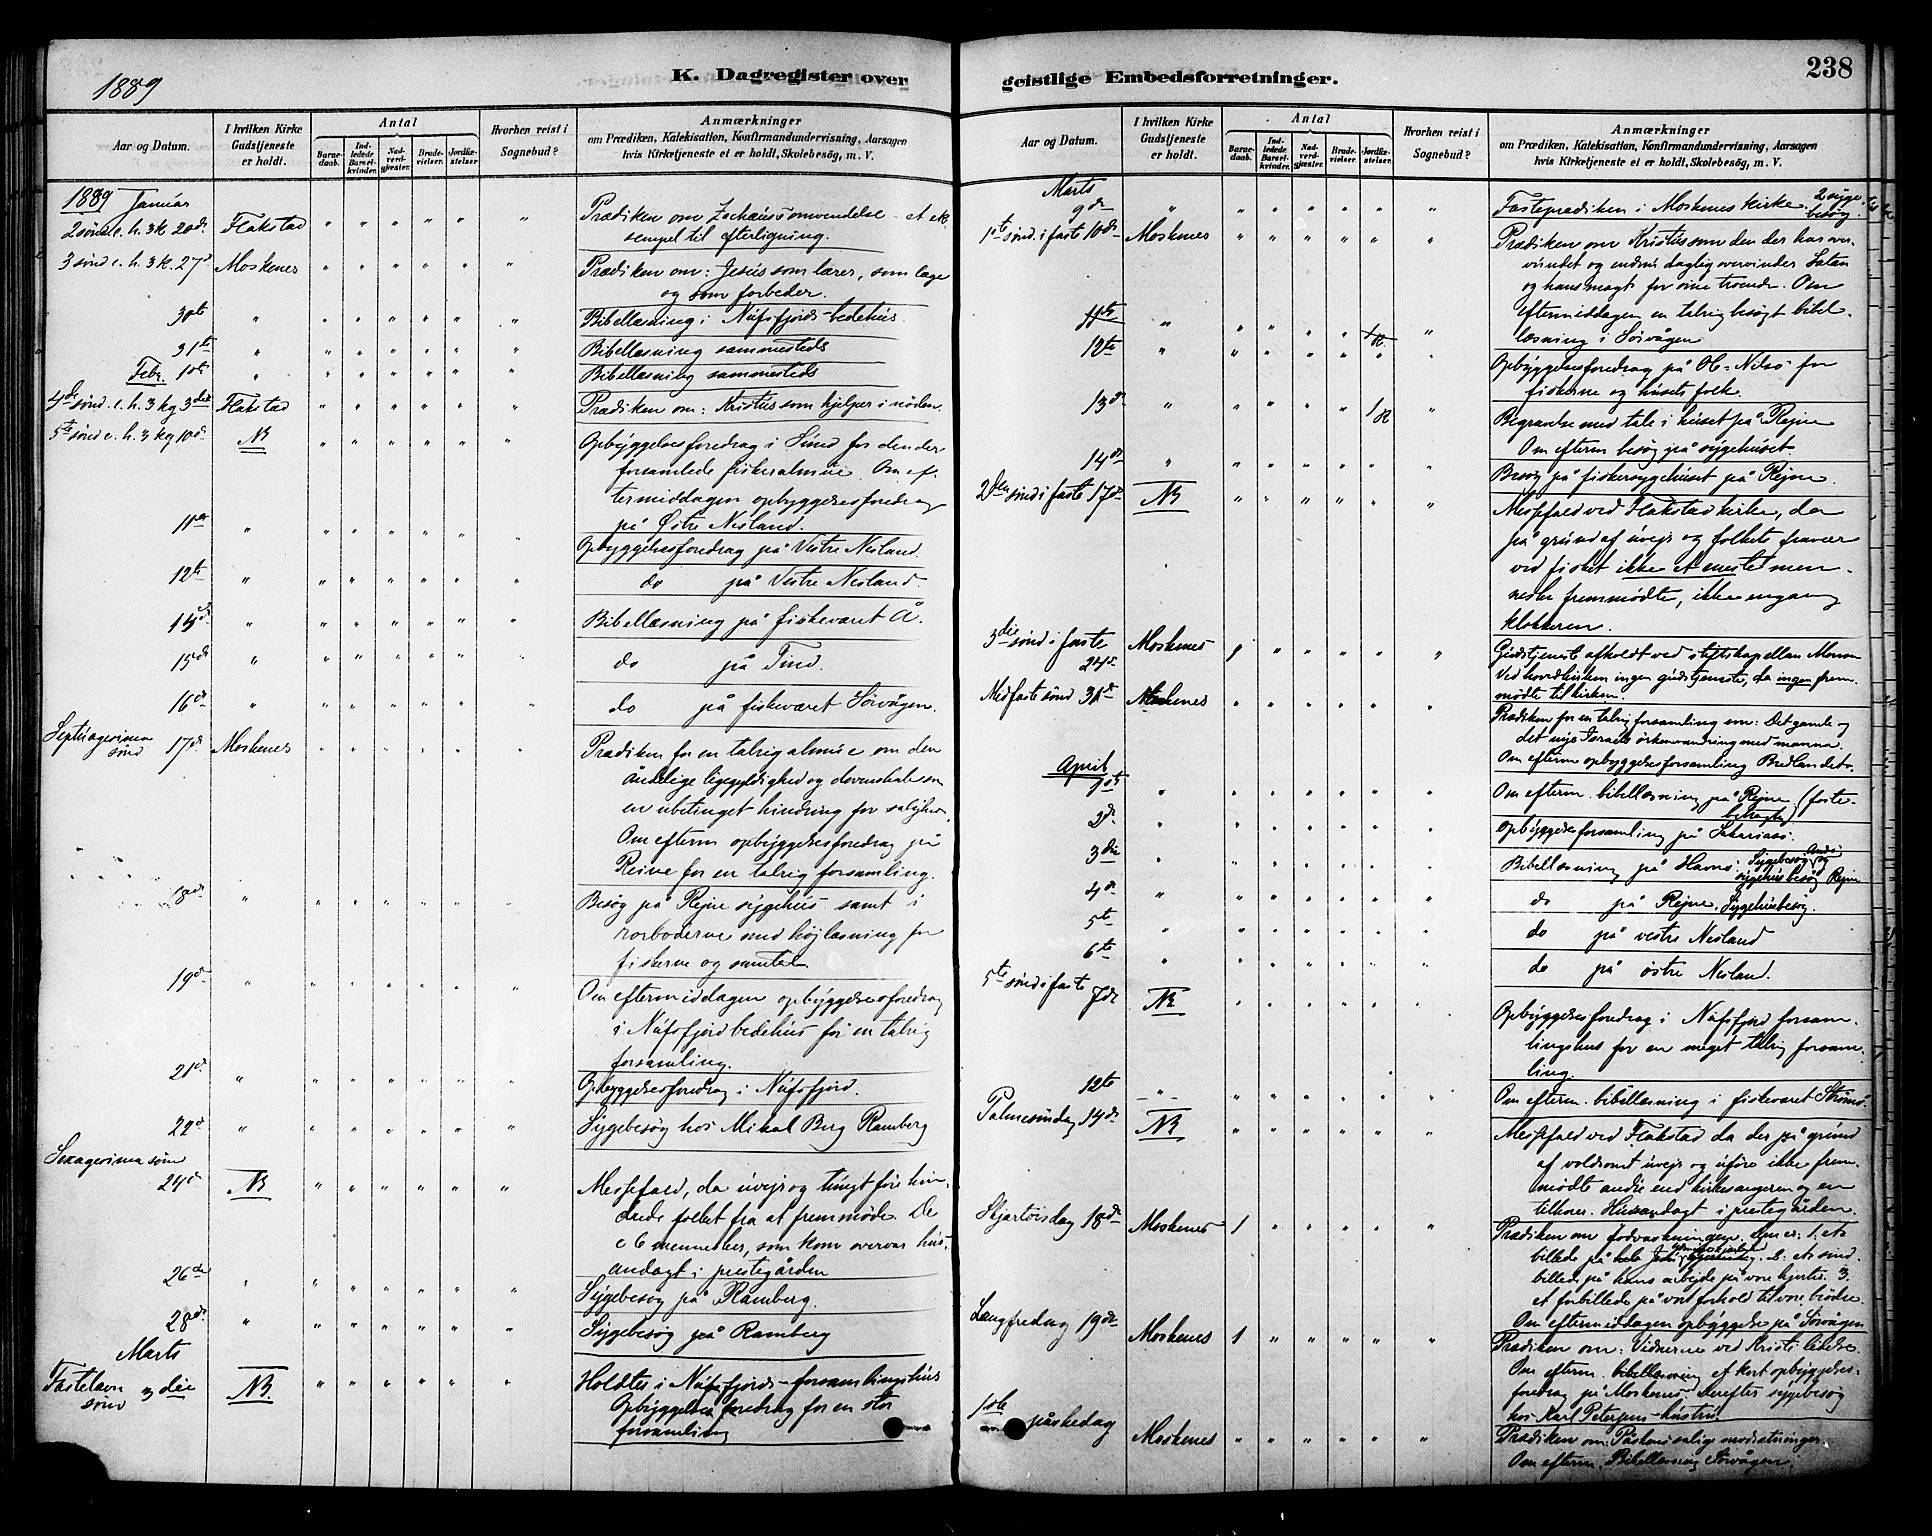 1889
K. Dagregister over
Aar og Datum.
I hvilken Kirke
Gudstjeneste
er holdt.
Antal
Barne-
daab.
Ind-
ledede
Barsel-
kvinder.
Nad-
verd-
gjæster.
Brude-
vielser.
Jordfæ-
stelser.
Hvorhen reist i
Sognebud?
Anmærkninger
om Prædiken, Katekisation, Konfirmandundervisning, Aarsagen
hvis Kirketjeneste ei er holdt, Skolebesög, m. V.
1889 Januar
2 sönd e. h. 3 k 20de Flakstad " " " " " " Prædiken om Zachæus' omvendelse et ek
sempel til efterligning.
3 sönd e. h. 3 k. 27d Moskenes " " " " " " Prædiken om: Jesus som lærer, som læge
og som forbeder.
30te " " " " " " " Bibellæsning i Nufsfjords bedehus
31te " " " " " " " Bibellæsning sammesteds
Febr. 1ste " " " " " " " Bibellæsning sammesteds
4de sönd. e. h. 3 kg 3die Flakstad " " " " " " Prædiken om: Kristus som hjelper i nöden.
5te sönd e. h. 3 kg 10d NB " " " " " " Opbyggelsesforedrag i Sund for den der
forsamlede fiskeralmue. Om ef-
termiddagen opbyggelsesforedrag
på Östre Nesland.
11te " " " " " " " Opbyggelsesforedrag på Vestre Nesland.
12te " " " " " " " do på Vestre Nesland
14d " " " " " " " Bibellæsning på fiskeværet Å.
15de " " " " " " " do på Tind.
16d " " " " " " " do på fiskeværet Sörvågen.
Septuagesima
sönd 17d Moskenes " " " " " " Prædiken for en talrig almue om den
åndelige ligegyldighed og dovenskab som
en ubetinget hindring for salighed.
Om efterm opbyggelsesforedrag på
Reine for en talrig forsamling.
18de " " " " " " " Besög på Rejne sygehus samt i
rorboderne med höjlæsning for
fiskerne og samtal.
19d " " " " " " " Om eftermiddagen opbyggelsesforedrag
i Nufsfjord bedehus for en talrig
forsamling.
21d " " " " " " " Opbyggelsesforedrag i Nufsfjord.
22d " " " " " " " Sygebesög hos Mikal Berg Ramberg
Sexagesima sön
24d NB " " " " " " Messefald, da uvejr og tungt före hin-
drede folket fra at fremmöde. De
c 6 mennesker, som kom overvar hus-
andagt i prestegården
26de " " " " " " " Sygebesög på Ramberg.
28de " " " " " " " Sygebesög på Ramberg
Marts
Fastelavn
sönd 3die NB. " " " " " " Holdtes i Nufsfjords-forsamlingshus
Opbyggelsesforedrag for en stor
forsamling
geistlige Embedsforretninger.
238
Aar og Datum.
I hvilken Kirke
Gudstjeneste
er holdt.
Antal
Barne-
daab.
Ind-
ledede
Barsel-
kvinder.
Nad-
verd-
gjæster.
Brude-
vielser.
Jordfæ-
stelser.
Hvorhen reist i
Sognebud?
Anmærkninger
om Prædiken, Katekisation, Konfirmandundervisning, Aarsagen
hvis Kirketjeneste ei er holdt, Skolebesög, m. V.
Marts
9de " " " " " " " Fasteprædiken i Moskenes kirke 2 syge-
besög.
1ste sönd. i faste 10de Moskenes " " " " " " Prædiken om Kristus som den der har over
vundet og endnu daglig overvinder Satan
og hans magt for sine troende. Om
Eftermiddagen en talrig besögt bibel
læsning i Sörvågen
11te " " " " " 1 "
12te " " " " " " " Opbyggelsesforedrag på Ol. Nilsö for
fiskerne og husets folk.
13d " " " " " 1 " Begravelse med tale i huset på Rejne
Om efterm besög på sygehuset
14de " " " " " " " Besög på fiskersygehuset på Rejne.
2den sönd i faste 17de NB " " " " " " Messefald ved Flakstad kirke, da
på grund af uvejr og folkets fravær
ved fisket ikke et eneste men-
neske fremmödte, ikke engang
klokkeren.
3die sönd i faste
24de Moskenes 1 " " " " " Gudstjeneste afholdt ved stiftskapellan
Ved hovedkirken ingen gudstjeneste, da ingen frem
mödte til kirken.
Midfastesönd 31te Moskenes " " " " " " Prædiken for en talrig forsamling om: Det gamle og
det nye Israels örkenvandring med manna.
Om efterm opbyggelsesforsamling
April
1ste " " " " " " " Om efterm. bibellæsning på Rejne (faste-
betragtn)
2de " " " " " " " opbyggelsesforsamling på Sakariasö.
3die " " " " " " " Bibellæsning på Havnö. Sygebesög og
sygehusbesög Rejne
4de " " " " " " " do på Rejne. Sygehusbesög.
5te " " " " " " " do på vestre Nesland
6te " " " " " " " do på östre Nesland.
5te sönd i faste 7de NB " " " " " " Opbyggelsesforedrag i Nufsfjord forsam-
lingshus for en meget talrig forsam-
ling.
12te " " " " " " " Om efterm. bibellæsning i fiskeværet Strömö.
Palmesöndag 14de NB " " " " " " Messefald ved Flakstad da der på grund
af voldsomt uvejr og uföre ikke frem-
mödte andre end kirkesangeren og en
tilhörer. Husandagt i prestegården.
Skjærtorsdag 18de Moskenes 1 " " " " " Prædiken om fodvaskningen. den er: 1. et
billede på hele Jesu gjerning. 2. et sind-
billede på hans arbejde på vore hjerter. 3.
et forbillede på vort forhold til vore brödre.
Om eftermiddagen opbyggelse på Sörvågen
Langfredag 19de Moskenes 1 " " " " " Prædiken om: Vidnerne ved Kristi lidelse.
Om efterm. bibellæsning et kort opbyggelses-
foredrag på Moskenes. Derefter sygebesög
hos Karl Petersens hustru.
1ste påskedag Moskenes " " " " " " Prædiken om: Påskens salige modsætninger.
Om efterm. Bibellæsning Sörvågen.